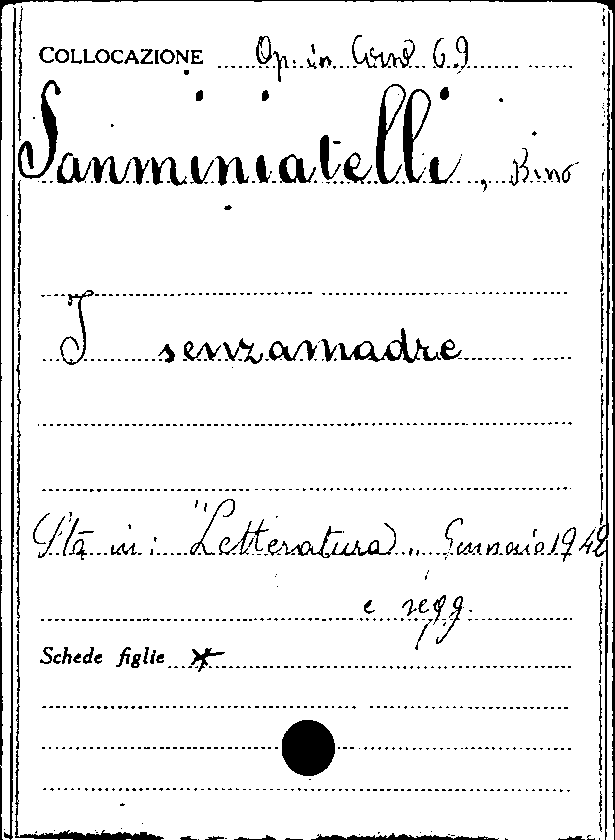 COLLOCAZIONE Op. in Corso 69
Sanminiatelli, Bino
I senzamadre
Sta in: "Letteratura" Gennaio 1942
e segg.
Schede figlie